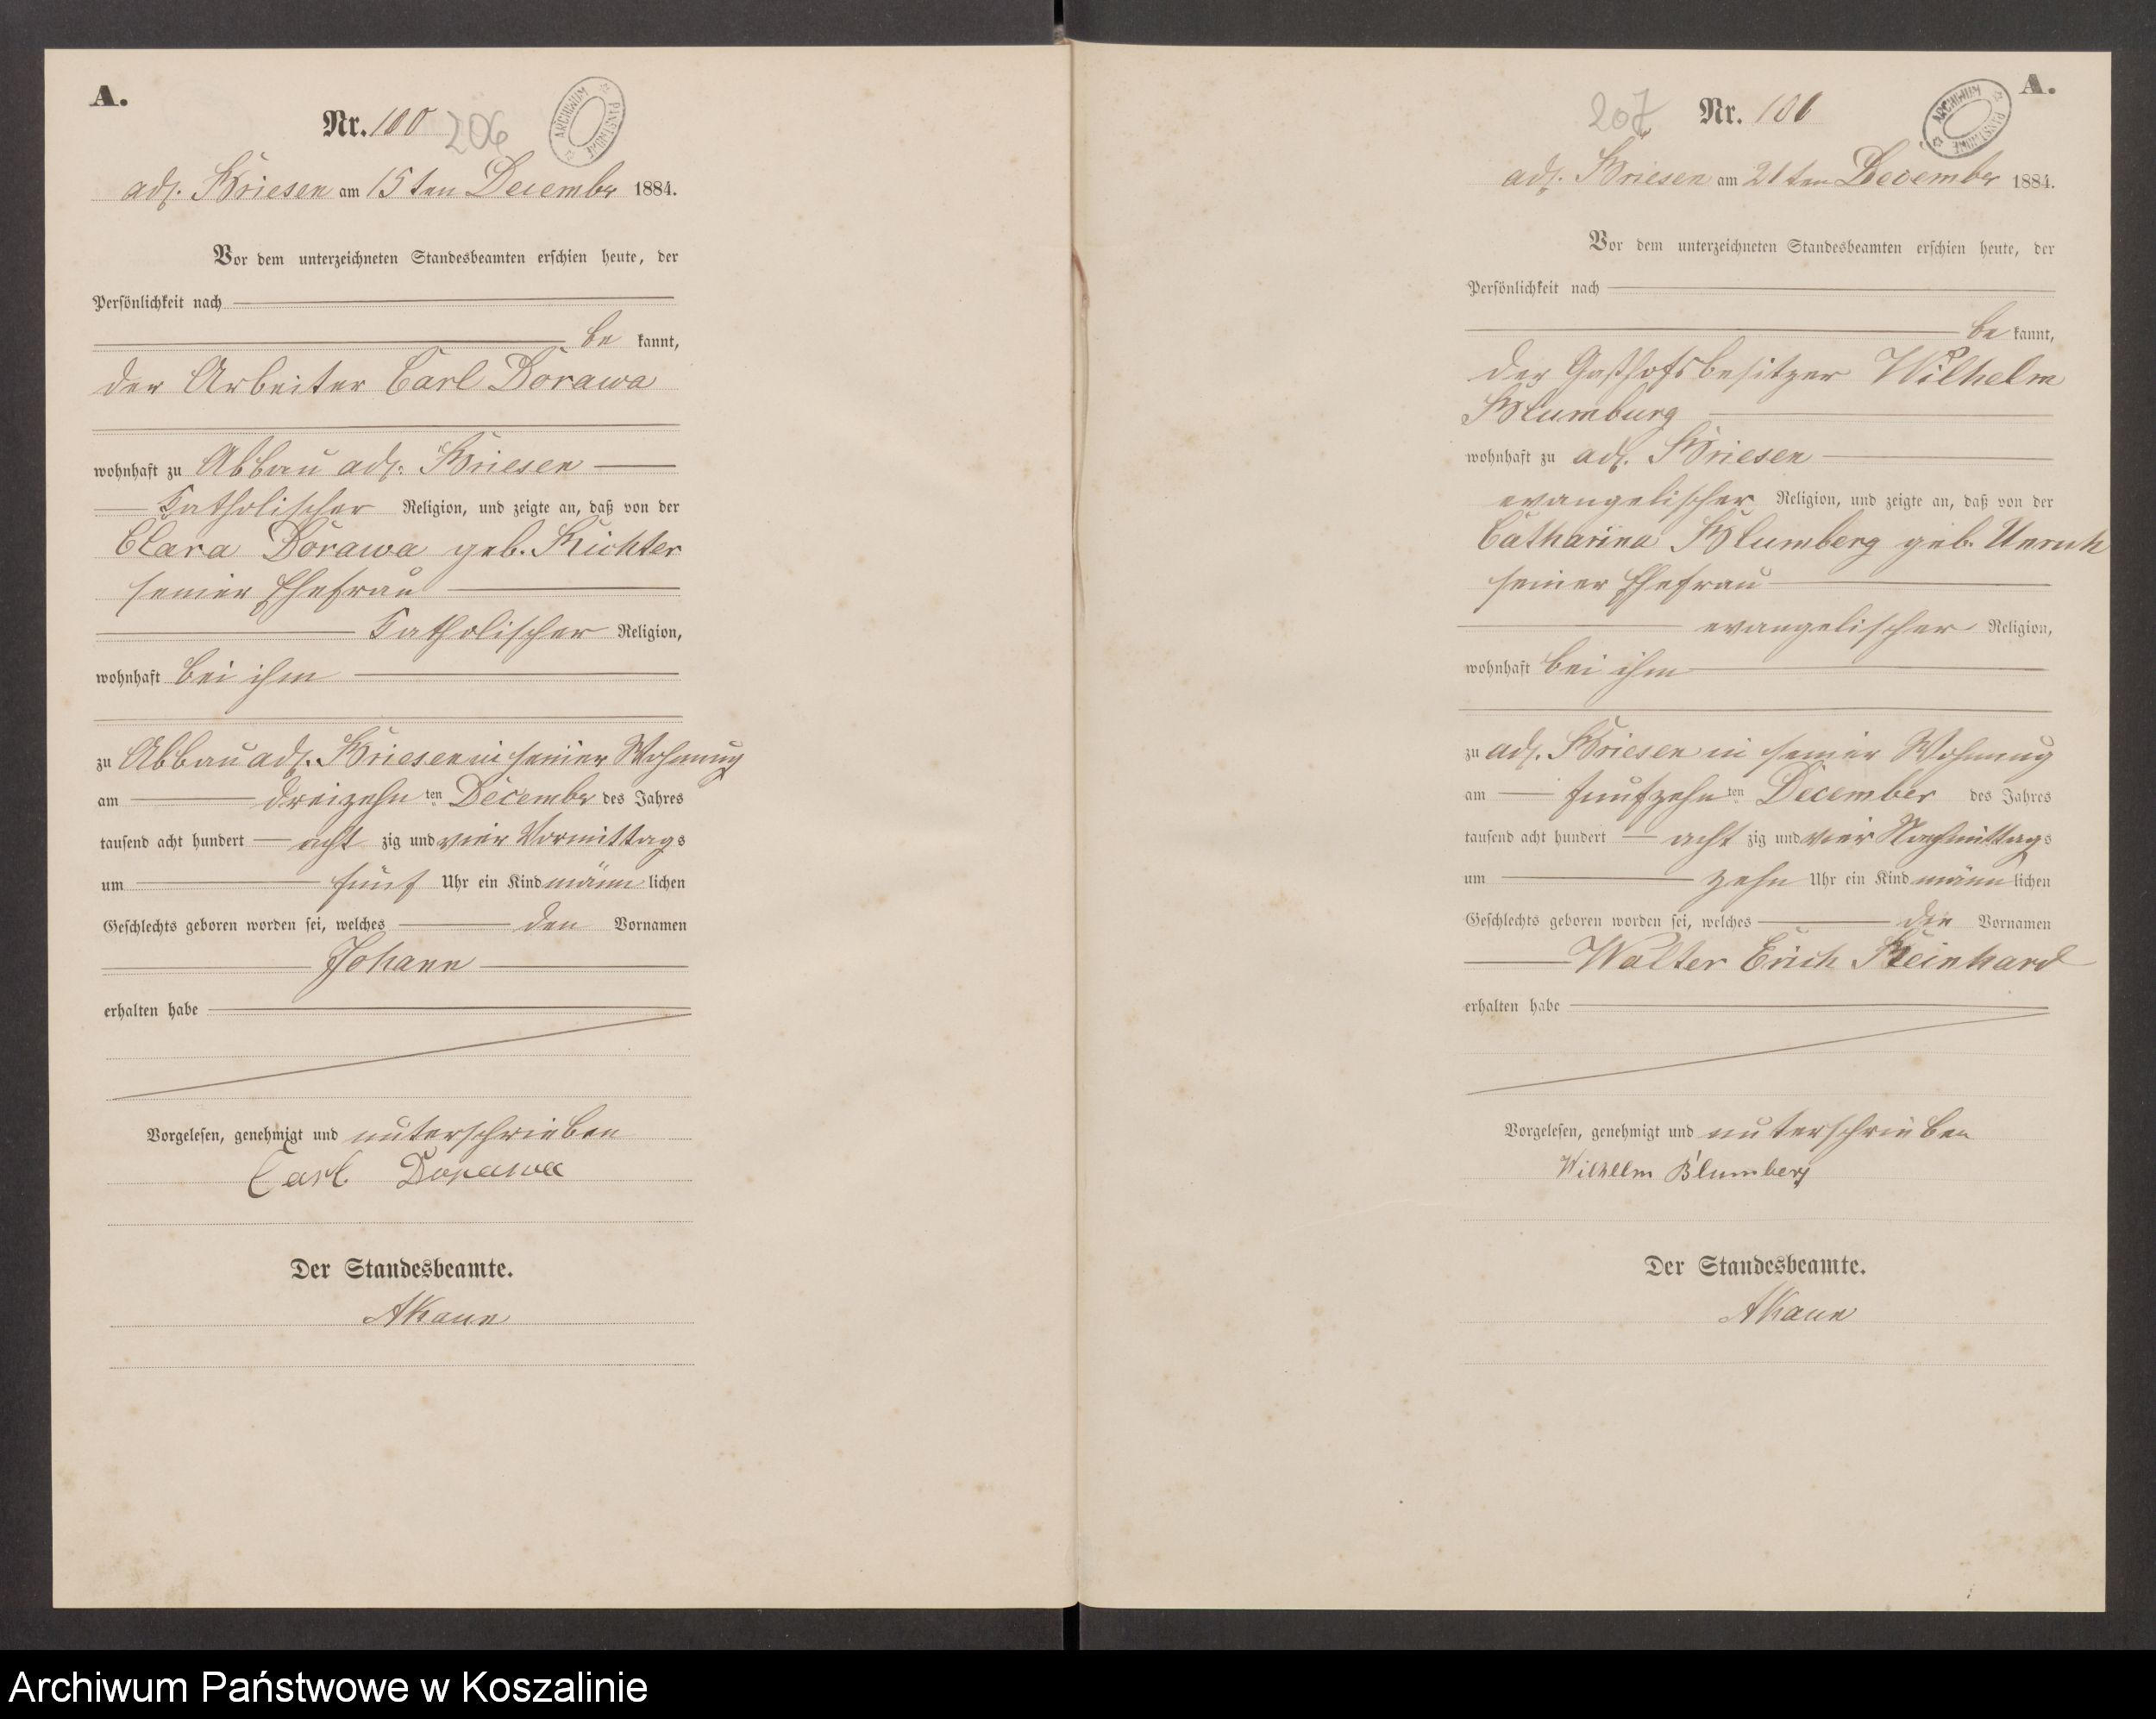 A.
Nr. 100
206
ARCHIWUM PAŃSTWOWE
adl. Briesen am 15ten December 1884.
Vor dem unterzeichneten Standesbeamten erschien heute, der
Persönlichkeit nach
be kannt,
der Arbeiter Carl Dorawa
wohnhaft zu Abbau adl. Briesen
katholischer Religion, und zeigte an, daß von der
Clara Dorawa geb. Richter
seiner Ehefrau
katholischer Religion,
wohnhaft bei ihm
zu Abbau adl. Briesen in seiner Wohnung
am dreizehn ten December des Jahres
tausend acht hundert acht zig und vier Vormittags
um fünf Uhr ein Kind männ lichen
Geschlechts geboren worden sei, welches den Vornamen
Johann
erhalten habe
Vorgelesen, genehmigt und unterschrieben
Carl Dorawa
Der Standesbeamte.
A.
207
Nr. 101
ARCHIWUM PAŃSTWOWE
adl. Briesen am 21ten December 1884.
Vor dem unterzeichneten Standesbeamten erschien heute, der
Persönlichkeit nach
be kannt,
der Gasthofsbesitzer Wilhelm
Blumburg
wohnhaft zu adl. Briesen
evangelischer Religion, und zeigte an, daß von der
Catharina Blumberg geb. Unruh
seiner Ehefrau
evangelischer Religion,
wohnhaft bei ihm
zu adl. Briesen in seiner Wohnung
am fünfzehn ten December des Jahres
tausend acht hundert acht zig und vier Nachmittags
um zehn Uhr ein Kind männ lichen
Geschlechts geboren worden sei, welches die Vornamen
Walter Erich Reinhard
erhalten habe
Vorgelesen, genehmigt und unterschrieben
Wilhelm Blumberg
Der Standesbeamte.
Archiwum Państwowe w Koszalinie